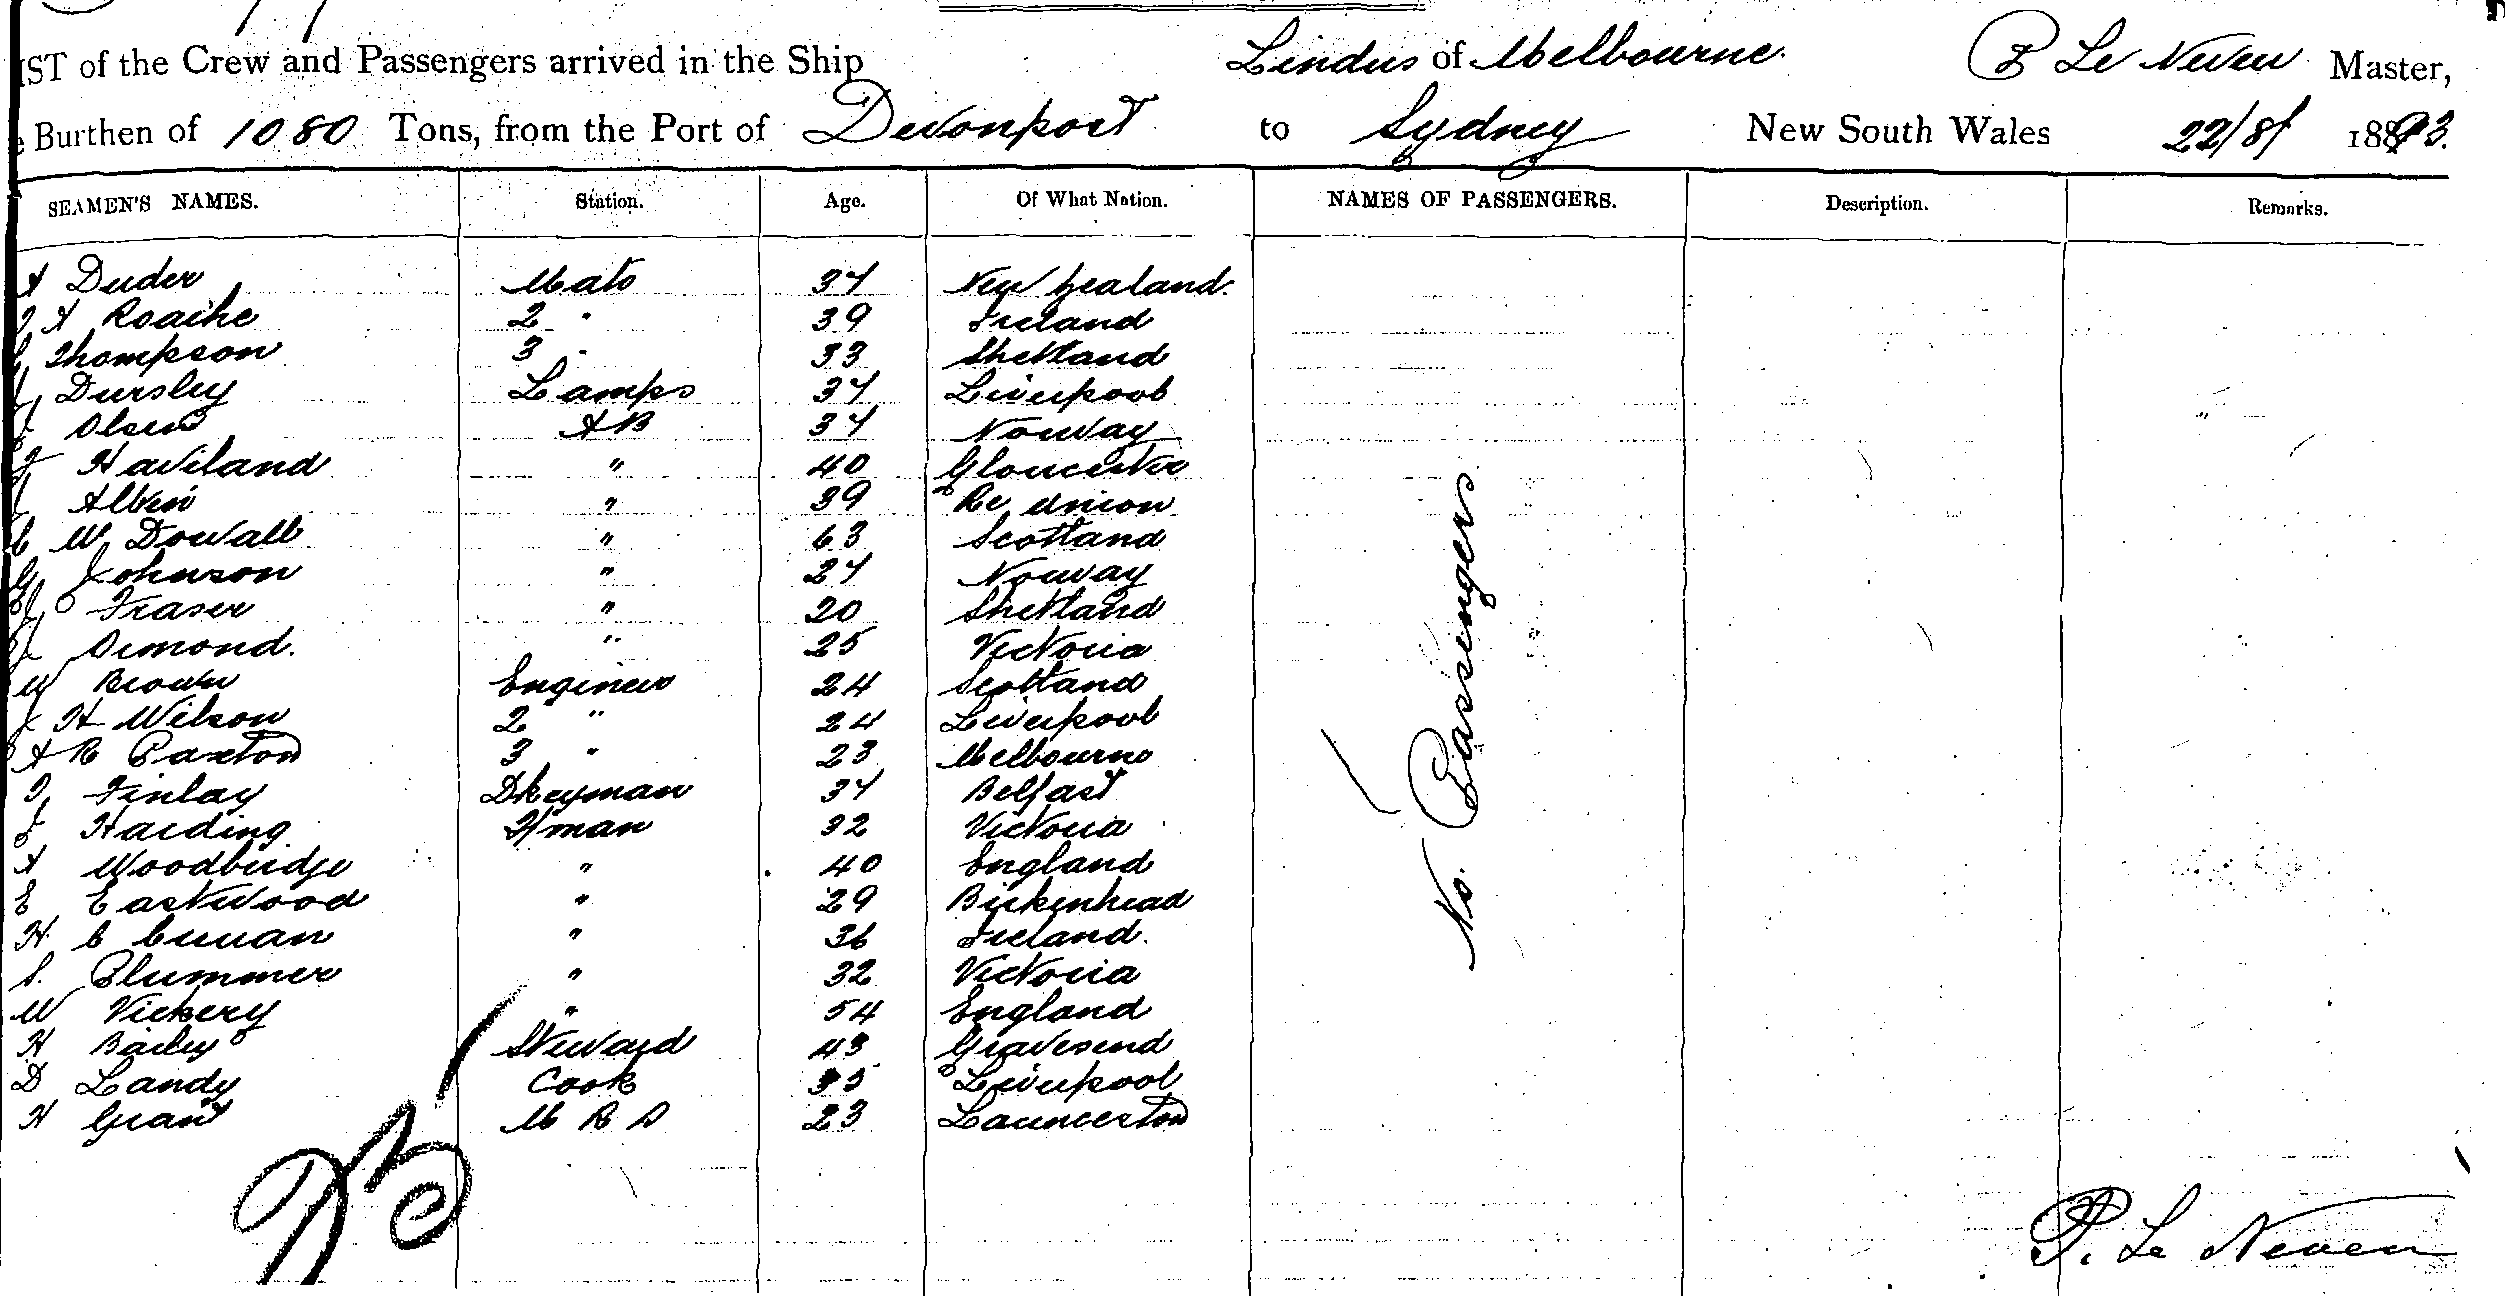 IST of the Crew and Passengers arrived in the Ship Lindus of Melbourne. P Le Neven Master,
e Burthen of 1080 Tons, from the Port of Devonport to Sydney New South Wales 22/8/ 1893.
SEAMEN'S NAMES. Station. Age. Of What Nation. NAMES OF PASSENGERS. Description. Remarks.
A Duder Mate 37 New Zealand.
A Roaihe 2 " 39 Ireland
Thompson 3 " 33 Shetland
Dursley Lamps 37 Liverpool
Olsen AB 37 Norway
Haviland " 40 Gloucester
Albin " 39 Re union
Mc Dowall " 63 Scotland
G Johnson " 27 Norway
Fraser " 20 Shetland
J Ormond. " 25 Victoria
W Brown Engineer 24 Scotland
J H Wilson 2 " 24 Liverpool
A R Paxton 3 " 23 Melbourne
T Finlay Dkeyman 37 Belfast
J Harding Fman 32 Victoria
A Woodbridge " 40 England
E Eastwood " 29 Birkenhead
H C Curran " 36 Ireland.
S. Plummer " 32 Victoria
W Vickery " 54 England
H Bailey Steward 43 Gravesend
D Landy Cook 35 Liverpool
H Grant M R S 23 Launceston
No. Passengers
P. Le Neven